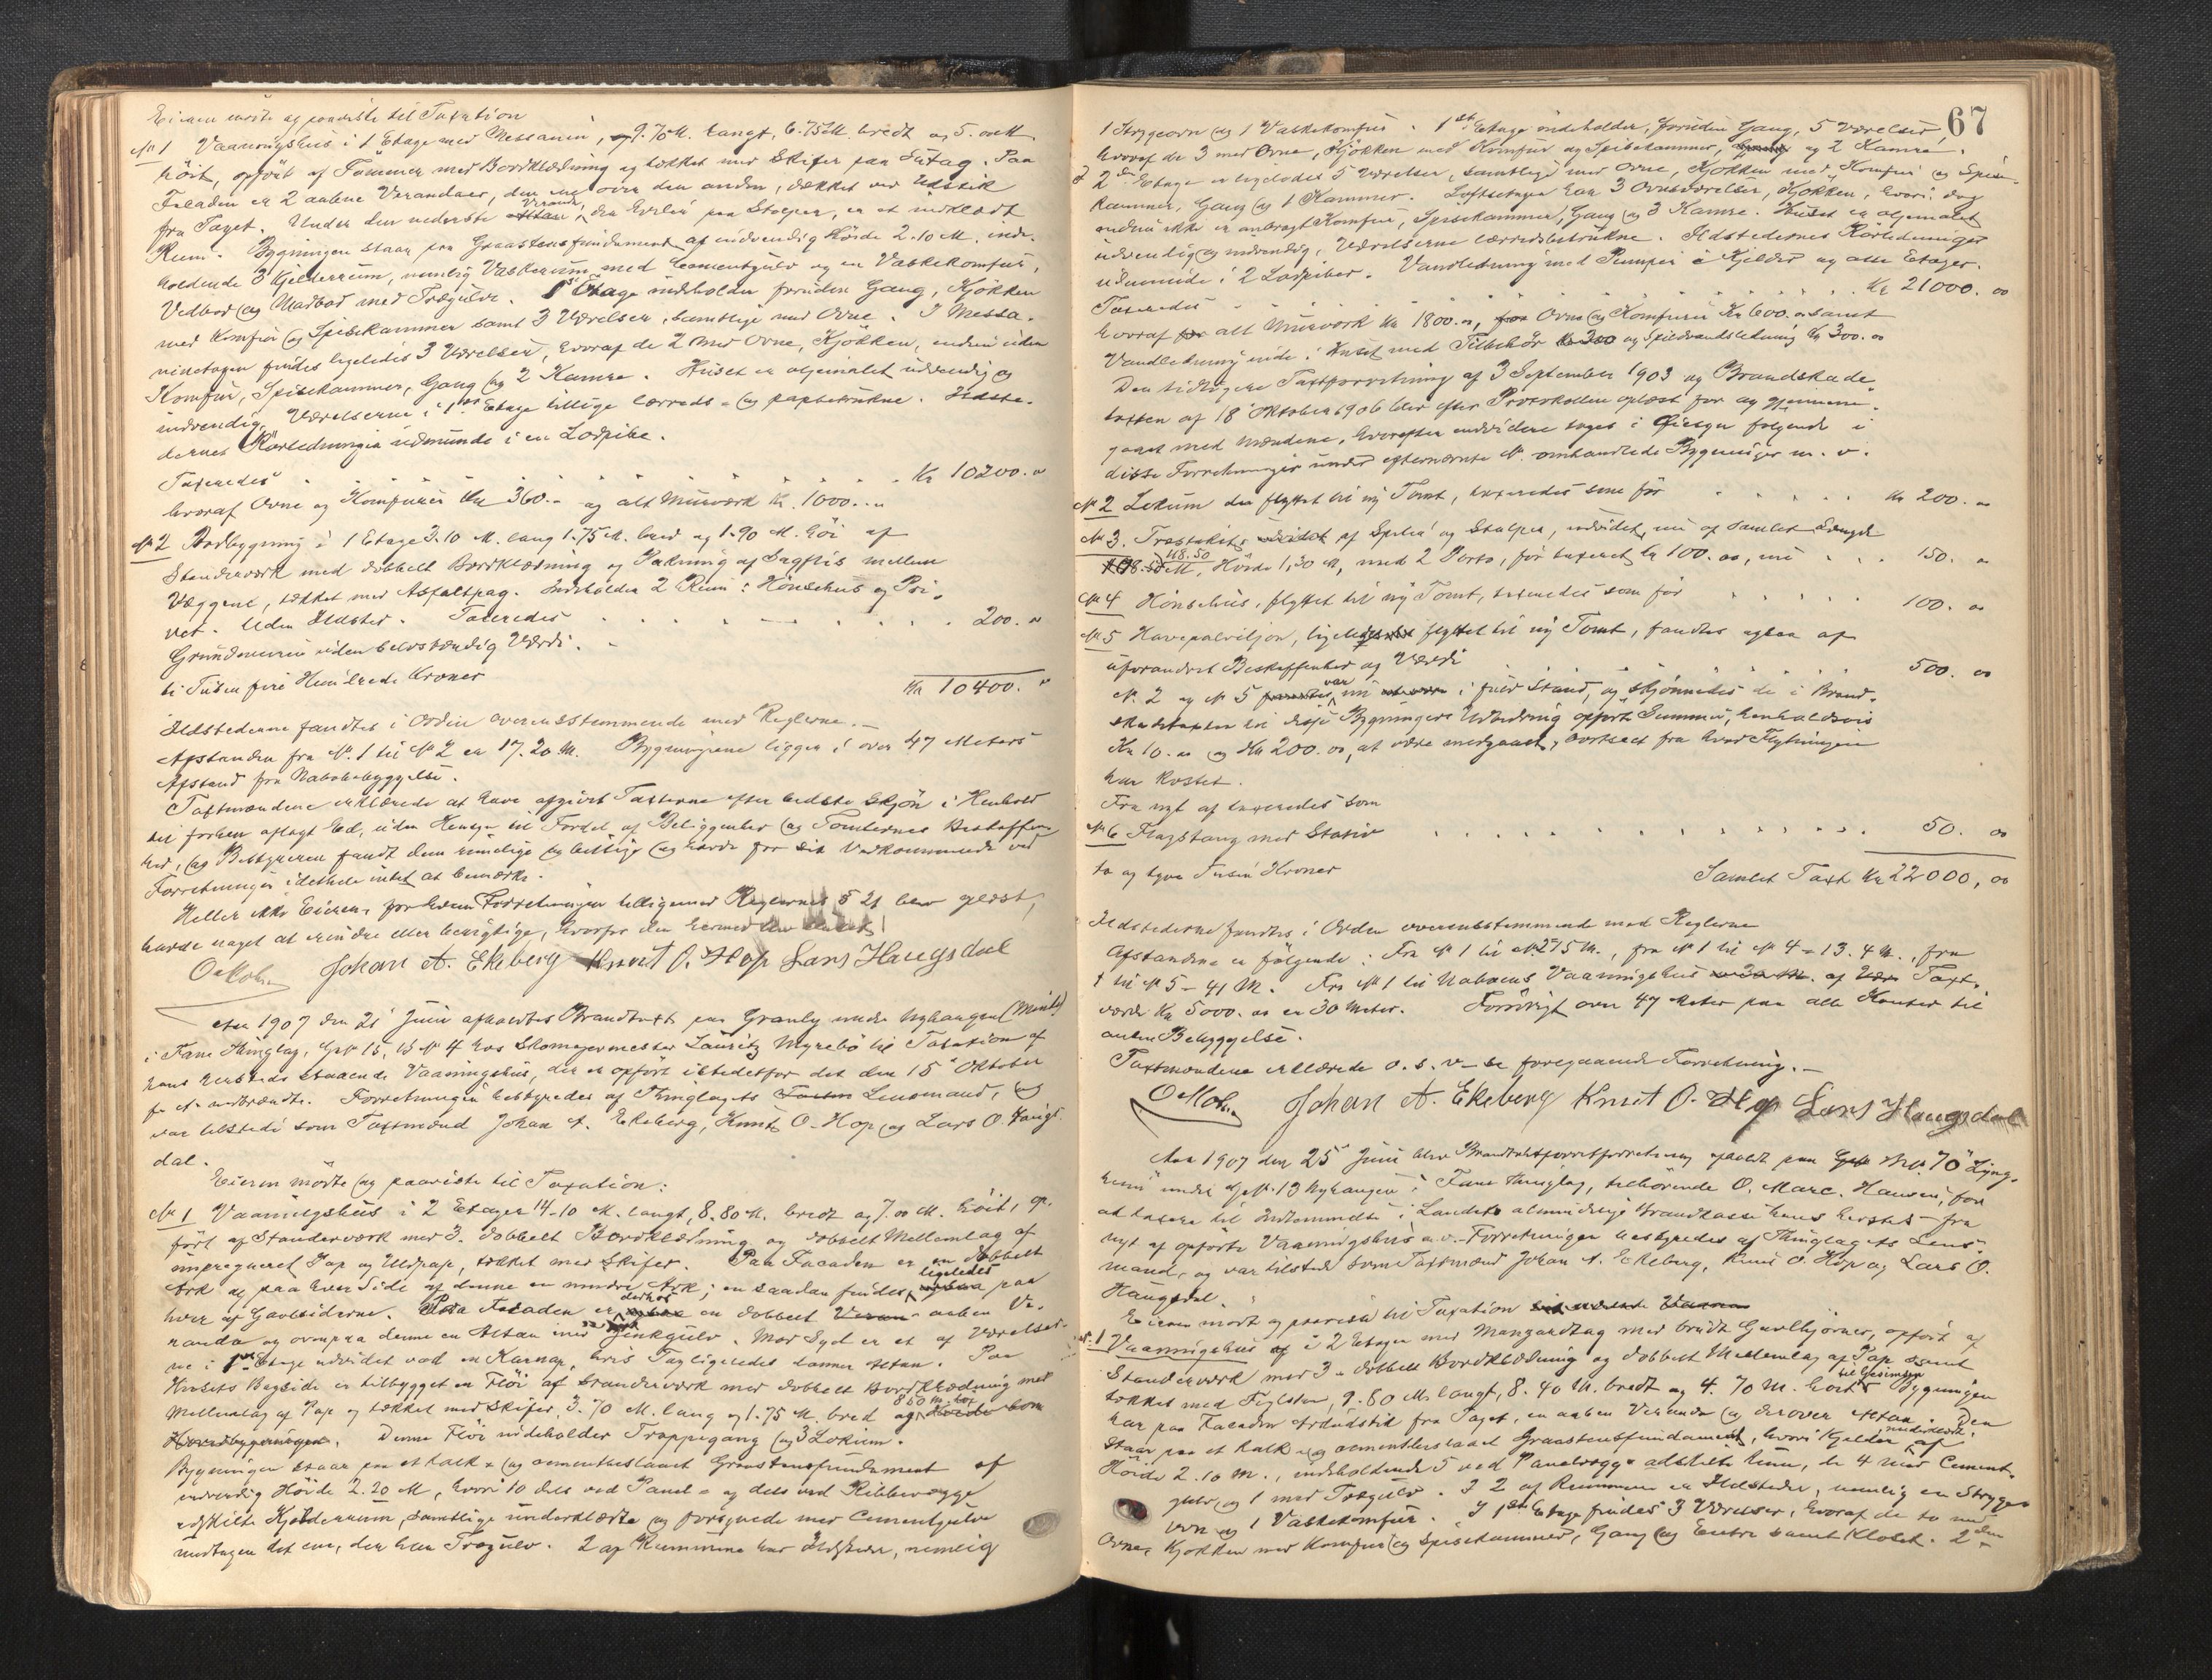 Eieren mødte og paaviste til Taxation
No 1 Vaaningshus i 1 Etage med Messanin, 9.70 M. langt, 6.75 M. bredt og 5.00 M.
høit, opført af Tømmer med Bordklædning og tækket med Skifer paa Sutag. Paa
Facaden er 2 aabne Verandaer, den ene over den anden, dækket ved Udstik
fra Taget. Under den nederste Altan Veranda, der hviler paa Stolper, er et indklædt
Rum. Bygningen staar paa Graastensfundament af indvendig Høide 2.10 M. inde-
holdende 3 Kjelderrum, nemlig Vaskerum med Cementgulv og en Vaskekomfur,
Vedbod og Madbod med Trægulve. 1ste Etage indeholder foruden Gang, Kjøkken
med Komfur og Spisekammer samt 3 Værelser, samtlige med Ovne. I Messa-
ninetagen findes ligeledes 3 Værelser, hvoraf de 2 med Ovne, Kjøkken, endnu uden
Komfur, Spisekammer, Gang og 2 Kamre. Huset er oljemalet udvendig og
indvendig, Værelserne i 1ste Etage tillige lærreds- og papbetrukne. Ildste-
dernes Rørledninger udmunde i en Lodpibe.
Taxeredes . . . . . . . . . . Kr 10200. "
hvoraf Ovne og Komfurer Kr 360.- og alt Murværk Kr. 1000. "
No 2 Bodbygning i 1 Etage 3.10 M. lang 1.75 M. bred og 1.90 M. høi af
Standerværk med dobbelt Bordklædning og Pakning af Sagflis mellem
Væggene, tækket med Asfaltpap. Indeholder 2 Rum: Hønsehus og Pri-
vet. Uden Ildsted. Taxeredes . . . . . . . 200. "
Grundmuren uden selvstændig Værdi.
ti Tusen fire Hundrede Kroner Kr 10400. "
Ildstederne fandtes i Orden overensstemmende med Reglerne.
Afstanden fra No. 1 til No 2 er 17.20 M. Bygningerne ligger i over 47 Meters
Afstand fra Nabobebyggelse.
Taxtmændene erklærede at have afgivet Taxterne efter bedste Skjøn i Henhold
til forhen aflagt Ed, uden Hensyn til Fordel af Beliggenhed og Tomternes Beskaffen-
hed, og Bestyreren fandt dem rimelige og billige og havde for sit Vedkommende ved
Forretningen idethele intet at bemærke.
Heller ikke Eieren, for hvem Forretningen tilligemed Reglernes § 21 blev oplæst,
havde noget at erindre eller berigtige, hvorfor den hermed blev sluttet.
Johan A. Ekeberg Knut O. Hop Lars Haugsdal
Aar 1907 den 21 Juni afholdtes Brandtaxt paa Granly under Nyhaugen (Minde)
i Fane Thinglag, GNo 13, B No 4 hos Skomagermester Lauritz Myrebø til Taxation af
hans hersteds staaende Vaaningshus, der er opført istedetfor det den 15 Oktober
f. A. nedbrændte. Forretningen bestyredes af Thinglagets Lensmand, og
var tilstede som Taxtmænd Johan A. Ekeberg, Knut O. Hop og Lars O. Haugs-
dal.
Eieren mødte og paaviste til Taxation:
No 1 Vaaningshus i 2 Etager 14.10 M. langt, 8.80 M. bredt og 7.00 M. høit, op-
ført af Standerværk med 3-dobbelt Bordklædning og dobbelt Mellemlag af
impregneret Pap og Uldpap, tækket med Skifer. Paa Facaden er en dobbelt
Ark og paa hver Side af denne en mindre Ark; en saadan findes ligeledes paa
hver af Gavlsiderne. Paa Facaden er derhos en dobbelt Veran- aaben Ve-
randa og ovenpaa denne en Altan med Zinkgulv. Mod Syd er et af Værelser-
ne i 1ste Etage udvidet ved en Karnap, hvis Tag ligeledes danner Altan. Paa
Husets Bagside er tilbygget en Fløi af Standerværk med dobbelt Bordklædning med
Mellemlag af Pap og tækket med Skifer, 3.70 M. lang og 1.75 M. bred og 8.50 M. høi Høide som
Hovedbygningen. Denne Fløi indeholder Trappegang og 3 Lokum.
Bygningen staar paa et kalk- og cementbeslaaet Graastensfundament af
indvendig Høide 2.20 M, hvori 10 dels ved Panel- og dels ved Ribbevægge
adskilte Kjelderrum, samtlige underklædte og forsynede med Cementgulve
undtagen det ene, der har Trægulv. 2 af Rummene har Ildsteder, nemlig
67
1 Strygeovn og 1 Vaskekomfur. 1ste Etage indeholder, foruden Gang, 5 Værelser,
hvoraf de 3 med Ovne, Kjøkken med Komfur og Spisekammer, og 2 Kamre.
I 2den Etage er ligeledes 5 Værelser, samtlige med Ovne, Kjøkken med Komfur og Spise-
kammer, Gang og 1 Kammer. Loftsetagen har 3 Ovnsværelser, Kjøkken, hvori dog
endnu ikke er anbragt Komfur, Spisekammer, Gang og 3 Kamre. Huset er oljemalet
udvendig og indvendig, Værelserne lærredsbetrukne. Ildstedernes Rørledninger
udmunde i 2 Lodpiber. Vandledning med Pumper i Kjelder og alle Etager.
Taxeredes . . . . . . . . . . Kr 21000. oo
hvoraf for alt Murværk Kr 1800. oo, for Ovne og Komfurer Kr 600. oo samt
Vandledning inde i Huset med Tilbehør Kr 300 og Spildvandsledning Kr 300. oo
Den tidligere Taxtforretning af 3 September 1903 og Brandskade-
taxten af 18 Oktober 1906 blev efter Protokollen oplæst for og gjennem-
gaaet med Mændene, hvorefter endvidere toges i Øiesyn følgende i
disse Forretninger under efternævnte No. omhandlede Bygninger m. v.
No 2 Lokum der flyttet til ny Tomt, taxeredes som før . . . . . Kr 200. oo
No 3. Træstakit, af Spiler og Stolper, udvidet, nu af samlet Længde
108.50 118.50 M, Høide 1,30 M, med 2 Porte, før taxeret Kr 100. oo, nu . . 150. "
No 4 Hønsehus, flyttet til ny Tomt, taxeredes som før . . . . . 100. oo
No 5 Havepavillon, ligeledes flyttet til ny Tomt, fandtes ogsaa af
uforandret Beskaffenhed og Værdi . . . . . 500. oo
No. 2 og No 5 fandtes var nu i fuld Stand, og skjønnedes de i Brand-
skadetaxten til disse Bygningers Udbedring opførte Summer, henholdsvis
Kr 10. oo og Kr 200. oo, at være medgaaet, bortseet fra hvad Flytningen
har kostet.
Fra nyt af taxeredes som
No 6 Flagstang med Stativ . . . . . . . . . . 50. oo
to og tyve Tusin Kroner Samlet Taxt Kr 22000, oo
Ildstederne fandtes i Orden overensstemmende med Reglerne
Afstandene er følgende: Fra No 1 til No 2 75 M., fra No 1 til No 4 - 13.4 M., fra
1 til No 5 - 41 M. Fra No 1 til Naboens Vaaningshus er 30 M. af Vær Taxt-
værdi Kr 5000. oo er 30 Meter. Forøvrigt over 47 Meter paa alle Kanter til
anden Bebyggelse.
Taxtmændene erklærede o. s. v. se foregaaende Forretning.
Johan A. Ekeberg Knut O. Hop Lars Haugsdal
Aar 1907 den 25 Juni blev Brandtaxtforretning afholdt paa No. 70 "Lyng-
heim" under GNo. 13 Nyhaugen i Fane Thinglag, tilhørende O. Marc. Hansen, for
at taxere til Indlemmelse i Landets almindelige Brandkasse hans hersteds fra
nyt af opførte Vaaningshus m.v. Forretningen bestyredes af Thinglagets Lens-
mand, og var tilstede som Taxtmænd Johan A. Ekeberg, Knut O. Hop og Lars O.
Haugsdal.
Eieren mødt og paaviste til Taxation
No. 1 Vaaningshus af i 2 Etager med Mansardtag med brudt Gavlhjørner, opført af
Standerværk med 3-dobbelt Bordklædning og dobbelt Mellemlag af Pap samt
tækket med Teglsten, 9.80 M. langt, 8.40 M. bredt og 4.70 M. høit til Gesimsen. Bygningen
har paa Facaden Arkudstik fra Taget, en aaben Veranda og derover Altan. Den
staar paa et kalk- og cementbeslaaet Graastensfundament, hvori Kjelder underklædt, af
Høide 2.10 M., indeholdende 5 ved Panelvægge adskilte Rum, de 4 med Cement-
gulv og 1 med Trægulv. I 2 af Rummene er Ildsteder, nemlig en Stryge-
ovn og 1 Vaskekomfur. I 1ste Etage findes 3 Værelser, hvoraf de to med
Ovne, Kjøkken med Komfur og Spisekammer, Gang og Entre samt Kloset. 2den